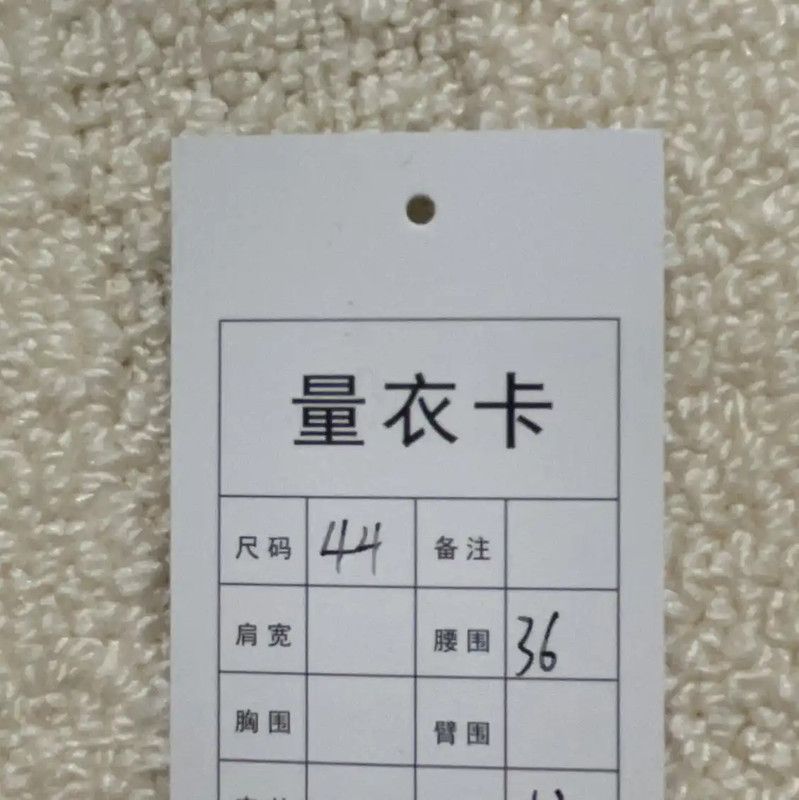 量衣卡
尺码 44 备注
肩宽 腰围 36
胸围 臂围